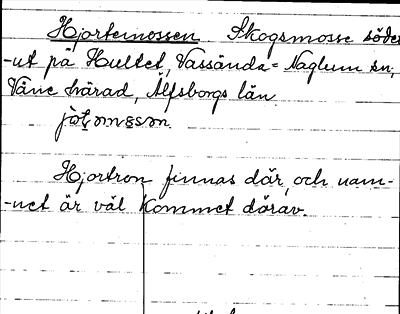 Hjortemossen Skogsmosse söder-
-ut på Hultet, Vassända-Naglum sn,
Väne härad, Älfsborgs län.
Hjortron finnas där, och nam-
-net är väl kommet därav.